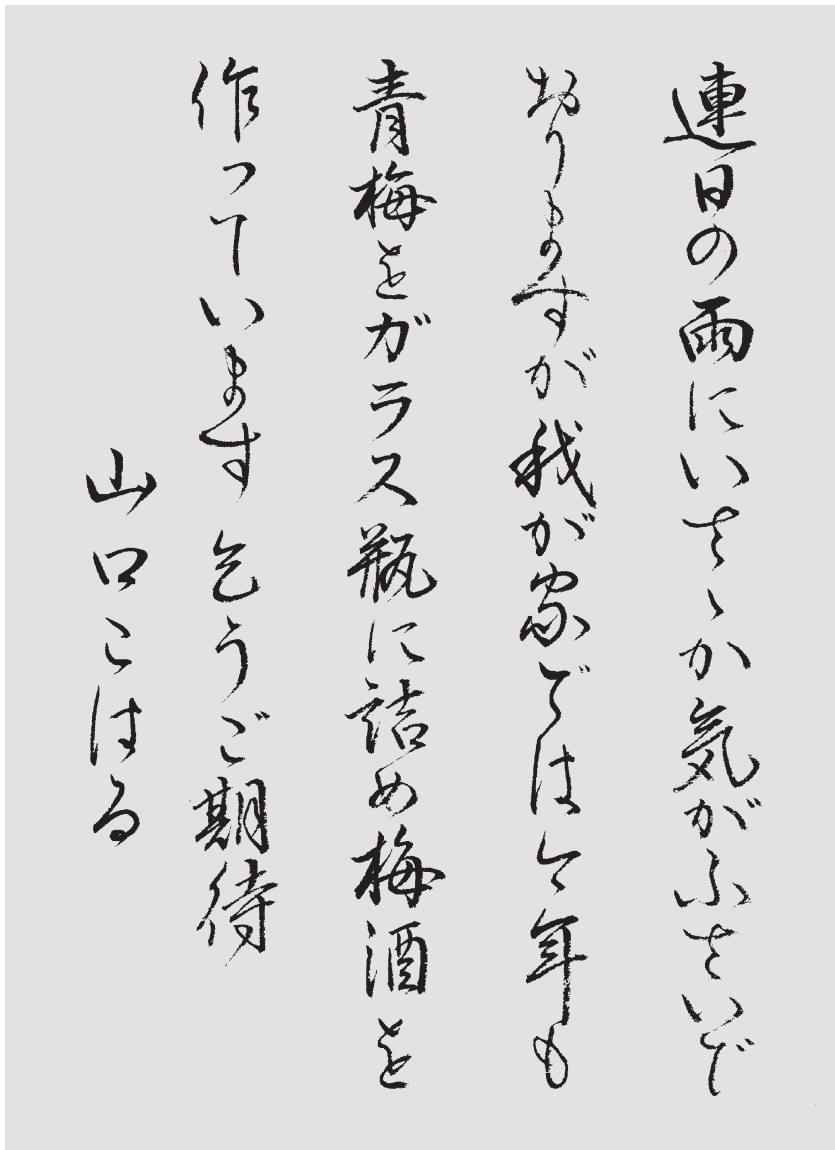 連日の雨にいさゝか気がふさいで
おりますが我が家では今年も
青梅をガラス瓶に詰め梅酒を
作っています 乞うご期待
山口こはる